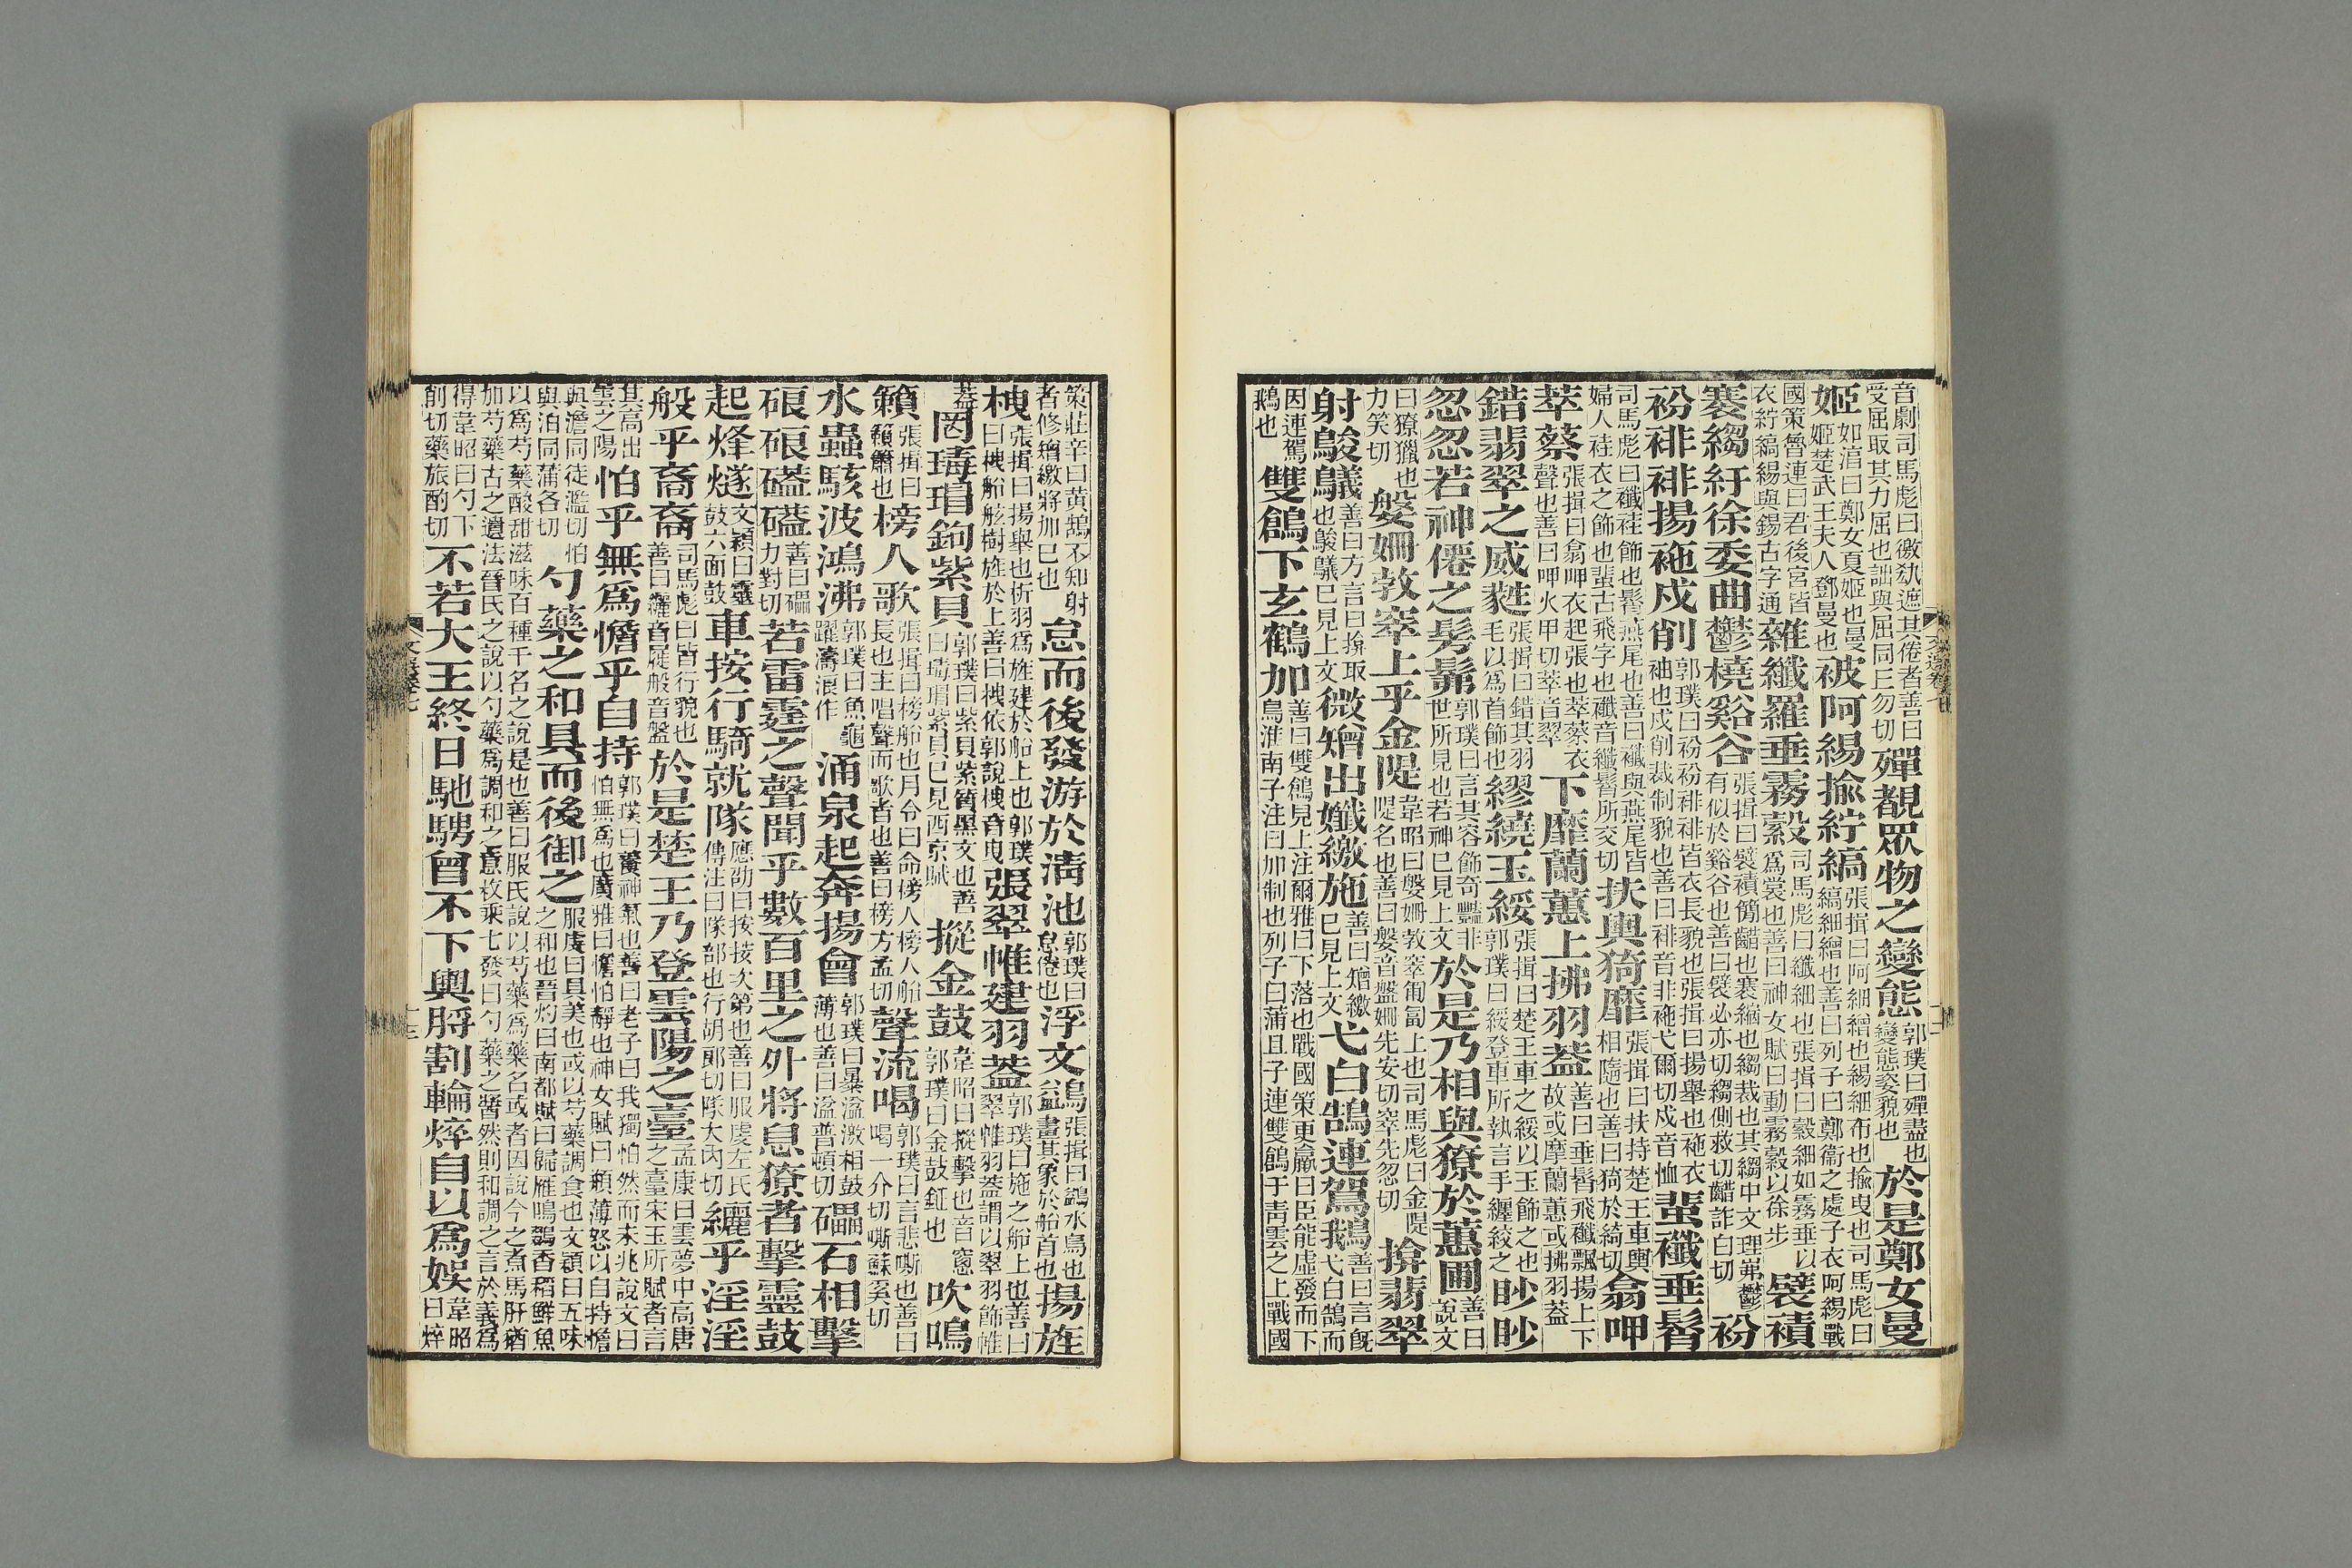 音劇司馬彪曰徼𠢧遮其倦者善曰受屈取其力屈也詘與屈同三勿切殫覩眾物之變態郭璞曰殫盡也變態姿貌也於是鄭女曼
姬如淳曰鄭女夏姬也曼姬楚武王夫人鄧曼也被阿緆揄紵縞張揖曰阿細繒也緆細布也揄曳也司馬彪曰縞細繒也善曰列子曰鄭衞之處子衣阿緆戰
國策魯連曰君後宮皆衣紵縞緆與錫古字通雜纖羅垂霧縠司馬彪曰纖細也張揖曰縠細如霧垂以爲裳也善曰神女賦曰動霧縠以徐步襞襀
褰縐紆徐委曲鬱橈谿谷張揖曰襞襀簡齰也褰縮也縐裁也其縐中文理茀鬱有似於谿谷也善曰襞必亦切縐側救切齰詐白切衯
衯裶裶揚袘戍削郭璞曰衯衯裶裶皆衣長貌也張揖曰揚舉也袘衣袖也戍削裁制貌也善曰裶音非袘弋爾切戍音恤蜚襳垂髾
司馬彪曰襳袿飾也髾燕尾也善曰襳與燕尾皆婦人袿衣之飾也蜚古飛字也襳音纖髾所交切扶輿猗靡張揖曰扶持楚王車輿相隨也善曰猗於綺切翕呷
萃蔡張揖曰翕呷衣起張也萃蔡衣聲也善曰呷火甲切萃音翠下靡蘭蕙上拂羽葢善曰垂髾飛襳飄揚上下故或摩蘭蕙或拂羽葢
錯翡翠之威蕤張揖曰錯其羽毛以爲首飾也繆繞玉綏張揖曰楚王車之綏以玉飾之也郭璞曰綏登車所執言手纏絞之眇眇
忽忽若神僊之髣髴郭璞曰言其容飾奇豔非世所見也若神已見上文於是乃相與獠於蕙圃善曰說文
曰獠獵也力笑切媻姍敦窣上乎金隄韋昭曰媻姍敦窣匍匐上也司馬彪曰金隄隄名也善曰媻音盤姍先安切窣先忽切揜翡翠
射鵔鸃善曰方言曰揜取也鵔鸃已見上文微矰出孅繳施善曰矰繳已見上文弋白鵠連鴐鵝善曰言旣弋白鵠而
因連鴐鵝也雙鶬下玄鶴加善曰雙鶬見上注爾雅曰下落也戰國策更羸曰臣能虛發而下鳥淮南子注曰加制也列子曰蒲且子連雙鶬于青雲之上戰國
策莊辛曰黃鵠不知射者修矰繳將加巳也怠而後發游於淸池郭璞曰怠倦也浮文鷁張揖曰鷁水鳥也畫其象於船首也揚旌
栧張揖曰揚舉也析羽爲旌建於船上也郭璞曰栧船舷樹旌於上善曰栧依郭說栧音曳張翠帷建羽葢郭璞曰施之船上也善曰翠帷羽葢謂以翠羽飾帷
葢罔瑇瑁鉤紫貝郭璞曰紫貝紫質黑文也善曰瑇瑁紫貝已見西京賦摐金鼓韋昭曰摐擊也音窻郭璞曰金鼓鉦也吹鳴
籟張揖曰籟簫也榜人歌張揖曰榜船也月令曰命榜人榜人船長也主唱聲而歌者也善曰榜方孟切聲流喝郭璞曰言悲嘶也善曰喝一介切嘶蘇奚切
水蟲駭波鴻沸郭璞曰魚龜躍濤浪作涌泉起奔揚會郭璞曰暴溢激相鼓薄也善曰溢普頓切礧石相擊
硠硠礚礚善曰礧力對切若雷霆之聲聞乎數百里之外將息獠者擊靈鼓
起烽燧文穎曰靈鼓六面鼓車按行騎就隊應劭曰按按次第也善曰服虔左氏傳注曰隊部也行胡郞切隊大內切纚乎淫淫
般乎裔裔司馬彪曰皆行貌也善曰纚音屣般音盤於是楚王乃登雲陽之臺孟康曰雲夢中高唐之臺宋玉所賦者言
其高出雲之陽怕乎無爲憺乎自持郭璞曰養神氣也善曰老子曰我獨怕然而未兆說文曰怕無爲也廣雅曰憺怕靜也神女賦曰頩薄怒以自持憺
與澹同徒濫切怕與泊同蒲各切勺藥之和具而後御之服虔曰具美也或以芍藥調食也文穎曰五味之和也晉灼曰南都賦曰歸雁鳴鵽香稻鮮魚
以爲芍藥酸甜滋味百種千名之說是也善曰服氏說以芍藥爲藥名或者因說今之煮馬肝猶加芍藥古之遺法晉氏之說以勺藥爲調和之意枚乘七發曰勺藥之醬然則和調之言於義爲
得韋昭曰勺丁削切藥旅酌切不若大王終日馳騁曾不下輿脟割輪焠自以爲娛韋昭曰焠